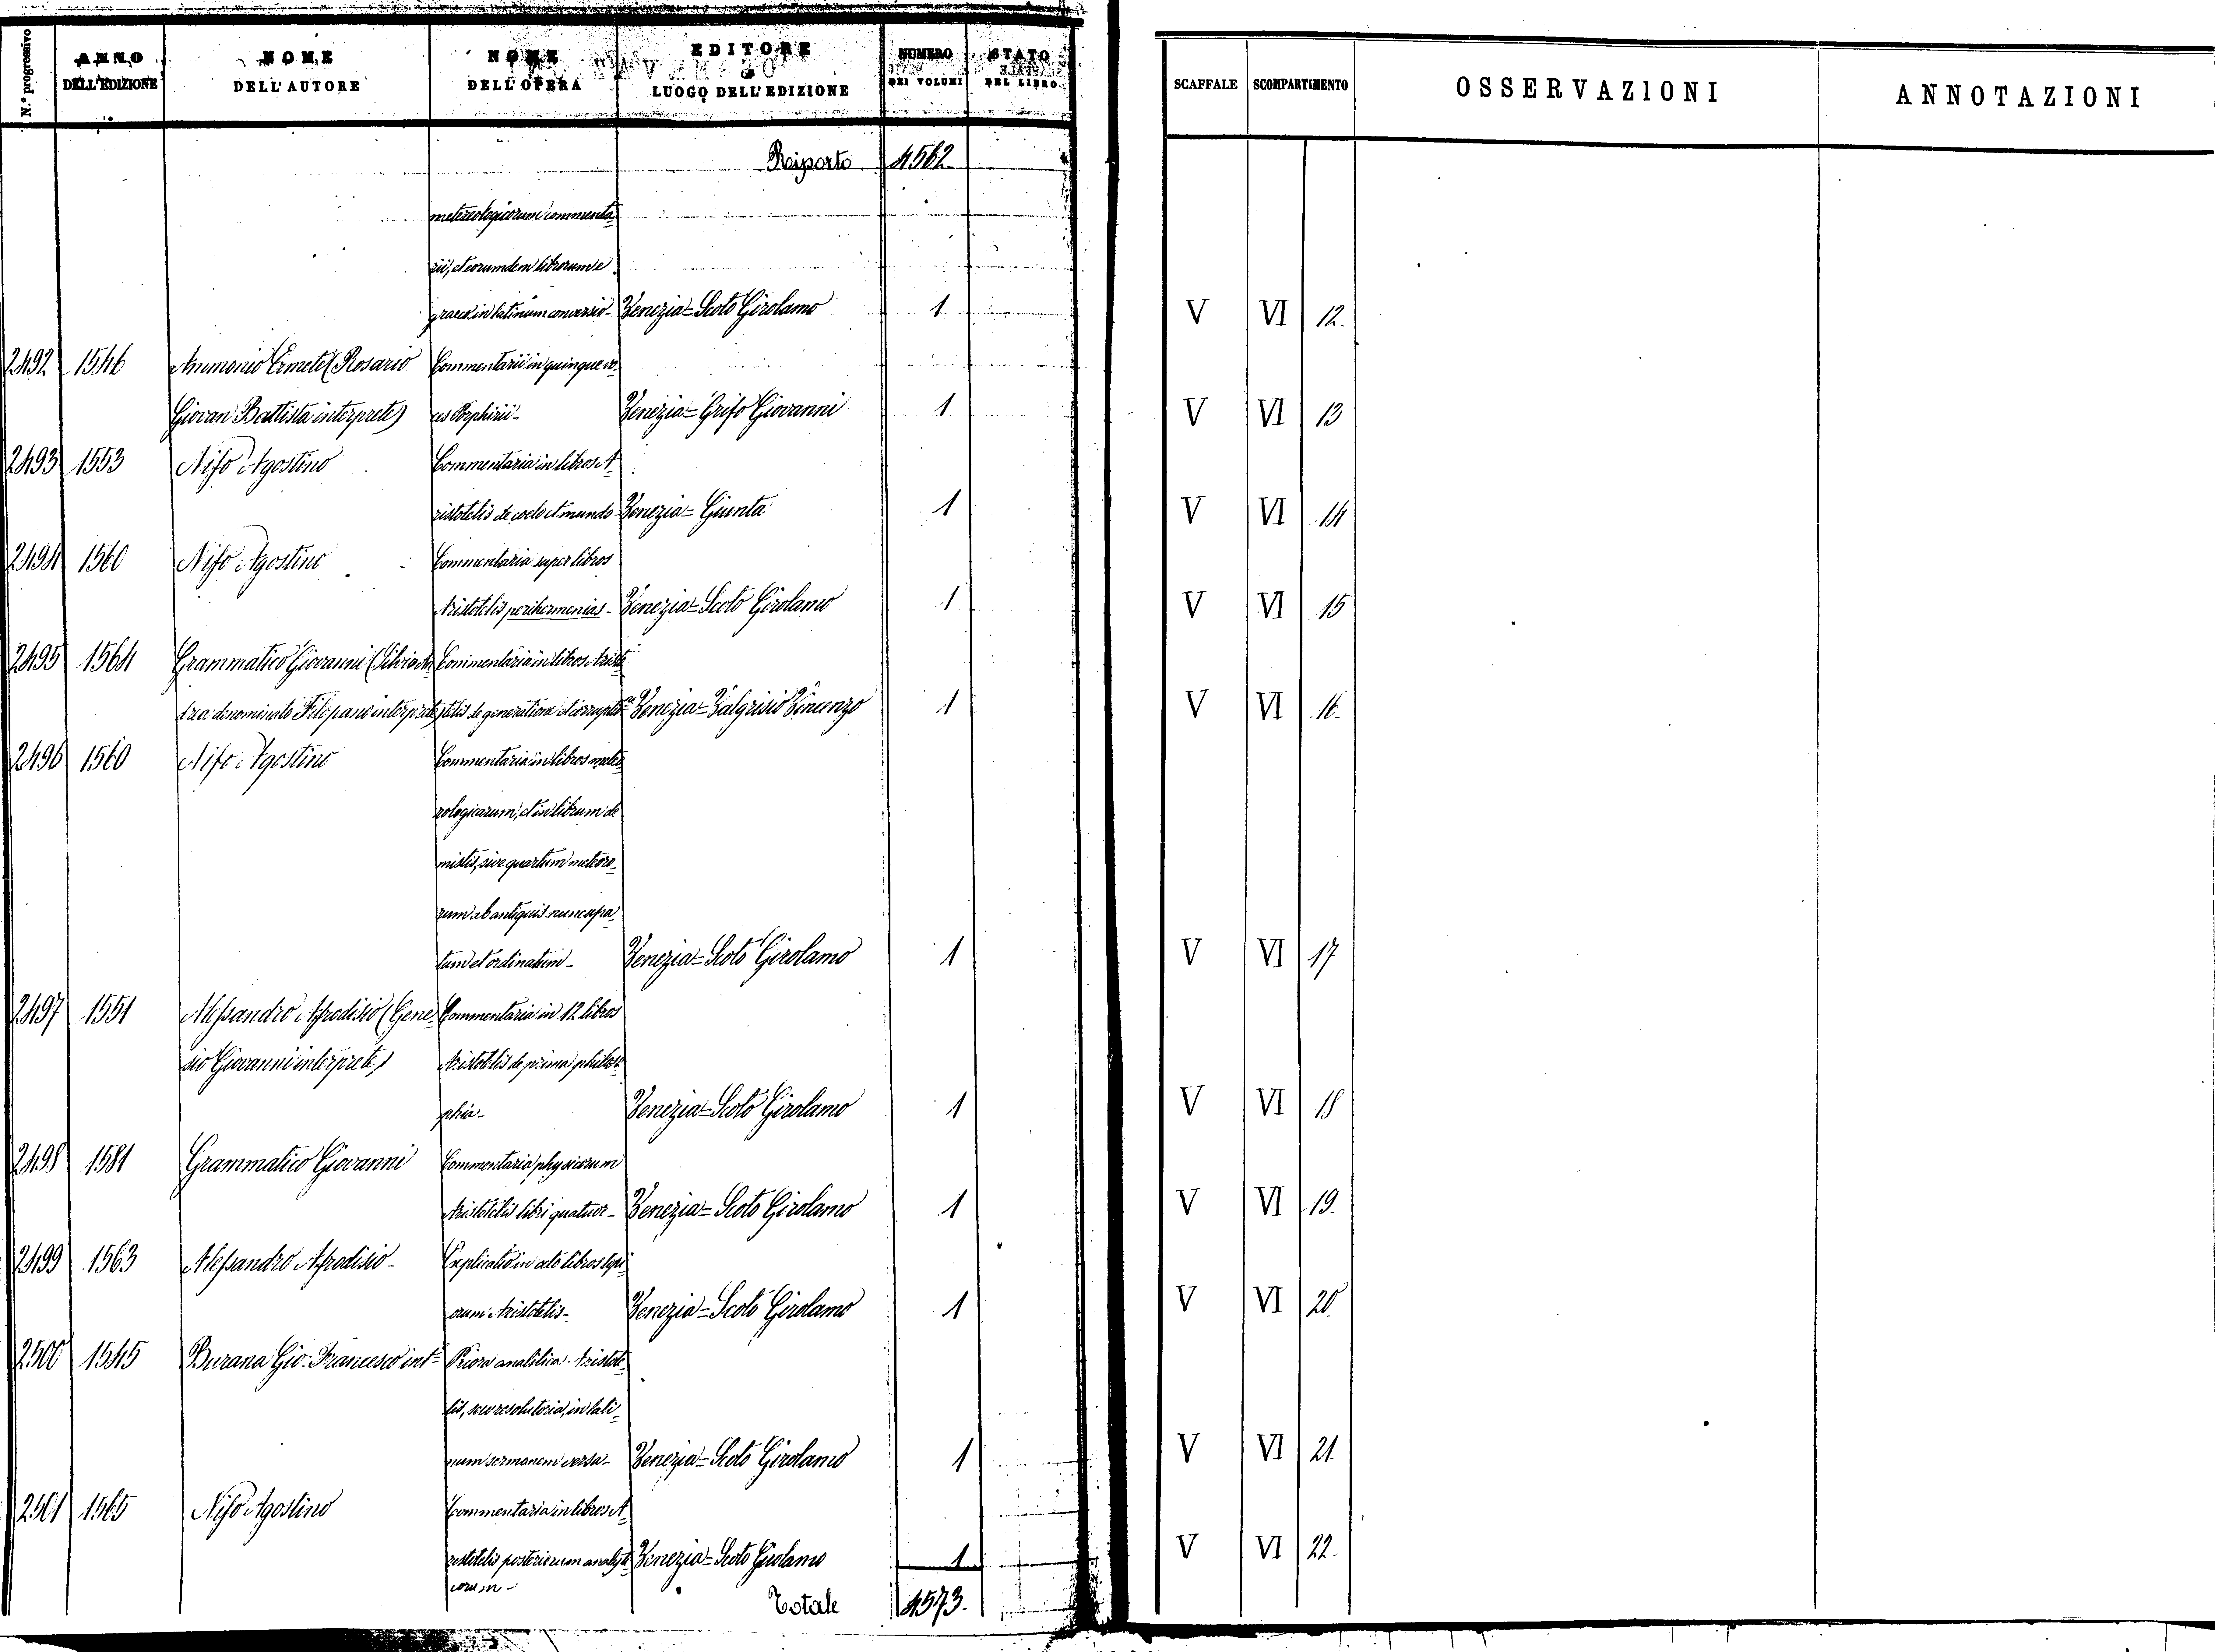 N.° progressivo | ANNO DELL'EDIZIONE | NOME DELL'AUTORE | NOME DELL'OPERA | EDITORE E LUOGO DELL'EDIZIONE | NUMERO DEI VOLUMI | STATO DEL LIBRO | SCAFFALE | SCOMPARTIMENTO | OSSERVAZIONI | ANNOTAZIONI
Riporto 4562
metereologicorum commenta=
rii, et eorumdem librorum e
graeco in latinum conversio- Venezia=Scoto Girolamo 1 V VI 12.
2492 1546 Ammonio Ermete (Rosario Commentarii in quinque vo=
Giovan Battista interprete) ces Porphirii- Venezia=Grifo Giovanni 1 V VI 13
2493 1553 Nifo Agostino Commentaria in libros A=
ristotelis de coelo et mundo Venezia=Giunta 1 V VI 14
2494 1560 Nifo Agostino Commentaria super libros
Aristotelis perihermenias- Venezia=Scoto Girolamo 1 V VI 15
2495 1564 Grammatico Giovanni Commentaria in libros Aristo=
denominato Filopano interprete telis de generatione et corruptione Venezia=Valgrisio Vincenzo 1 V VI 16.
2496 1560 Nifo Agostino Commentaria in libros meteo=
rologicarum, et in librum de
mistis, sive quartum meteoro=
rum ab antiquis nuncupa=
tum et ordinatum- Venezia=Scoto Girolamo 1 V VI 17
2497 1551 Alessandro Afrodisio (Gene= Commentaria in 12 libros
sio Giovanni interprete) Aristotelis de prima philoso=
phia- Venezia=Scoto Girolamo 1 V VI 18
2498 1581 Grammatico Giovanni Commentaria physicorum
Aristotelis libri quatuor- Venezia=Scoto Girolamo 1 V VI 19.
2499 1563 Alessandro Afrodisio- Explicatio in octo libros topi=
corum Aristotelis- Venezia=Scoto Girolamo 1 V VI 20.
2500 1545 Burana Gio: Francesco int= Priora analitica Aristote=
lis, seu resolutoria, in lati=
num sermonem versa- Venezia=Scoto Girolamo 1 V VI 21.
2501 1565 Nifo Agostino Commentaria in libros A=
ristotelis posteriorum analyti= Venezia=Scoto Girolamo 1 V VI 22.
corum-
Totale 4573.